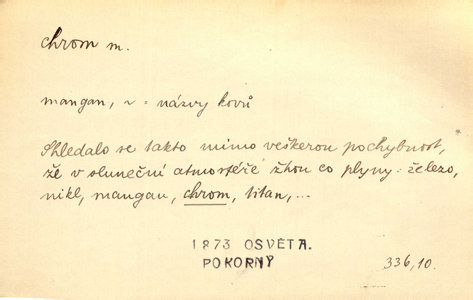 chrom m.
mangan, ~ = názvy kovů
Shledalo se takto mimo veškerou pochybnost,
že v sluneční atmosféře žhou co plyny: železo,
nikl, mangan, chrom, titan,...
1873 OSVĚTA.
POKORNÝ
336,10.